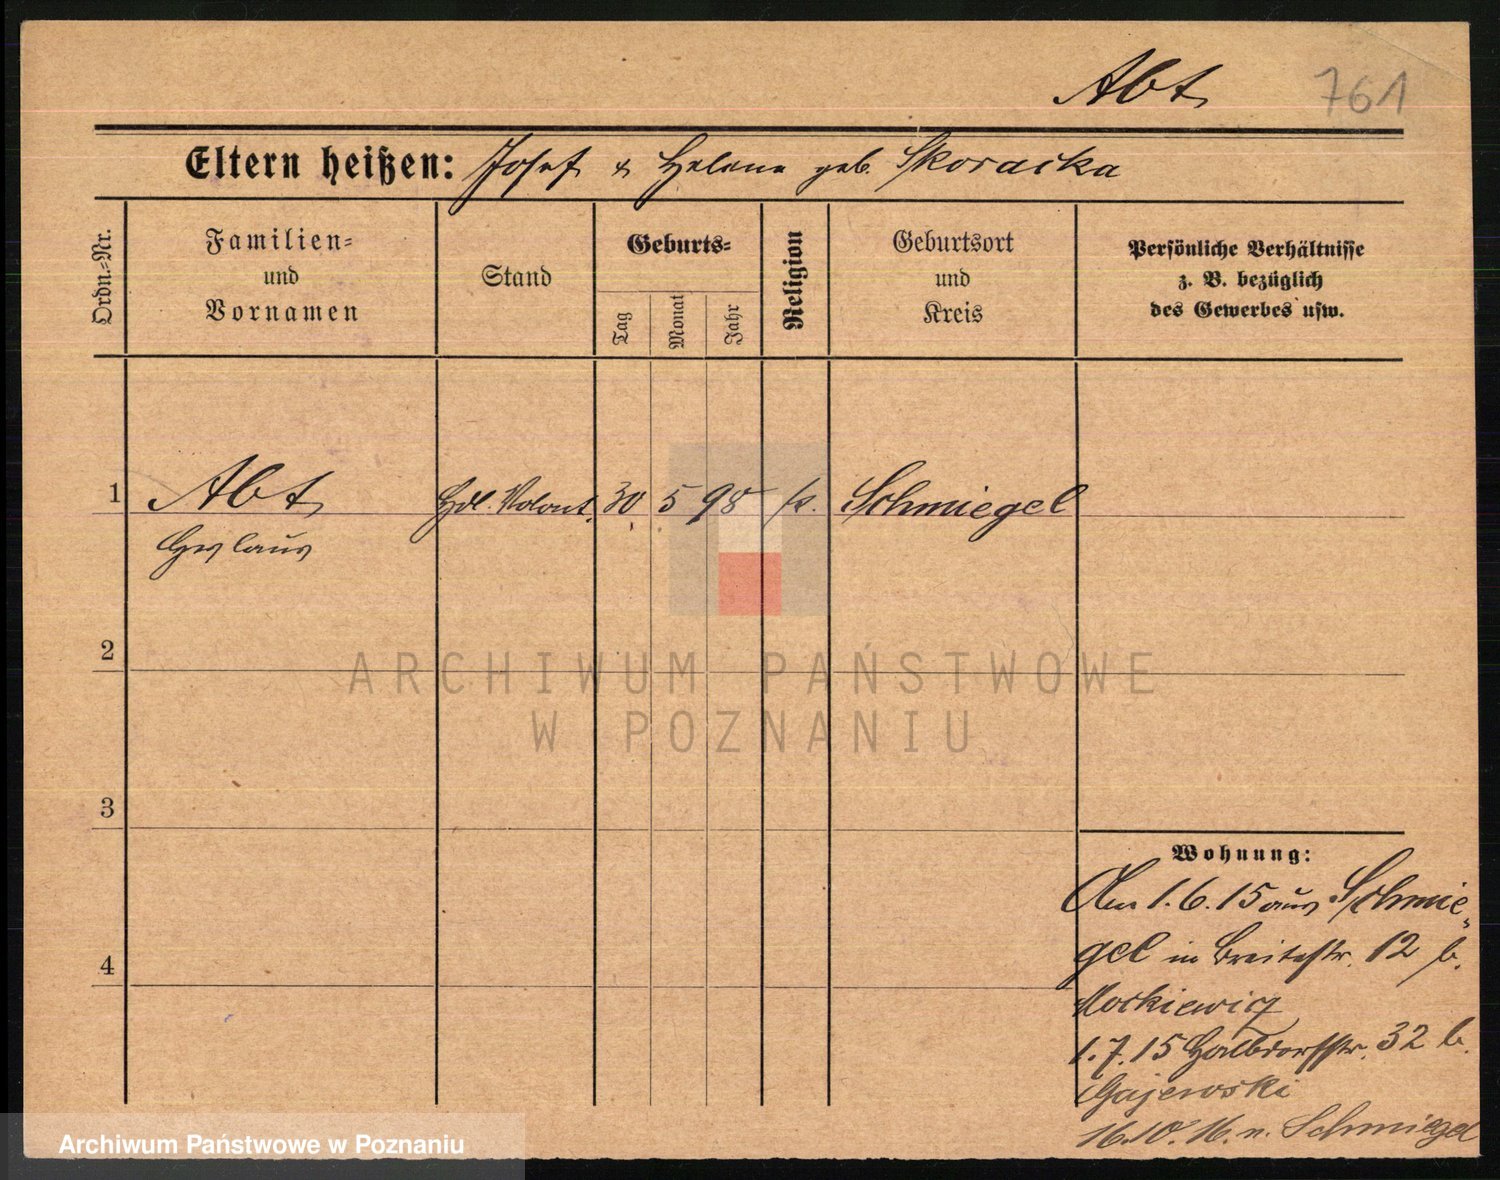 Abt
761
Eltern heißen: Josef & Helene geb. Skoracka
Ordn.-Nr.
Familien-
und
Vornamen
Stand
Geburts-
Tag
Monat
Jahr
Religion
Geburtsort
und
Kreis
Persönliche Verhältnisse
z. B. bezüglich
des Gewerbes usw.
1 Abt Hdl. Volont. 30 5 98 k. Schmiegel
2
ARCHIWUM PAŃSTWOWE
W POZNANIU
3
Wohnung:
Am 1.6.15 aus Schmie-
gel in Breitestr. 12 b.
4
1.7.15 Halbdorfstr. 32 b.
Gajewski
16.10.16. n. Schmiegel
Archiwum Państwowe w Poznaniu